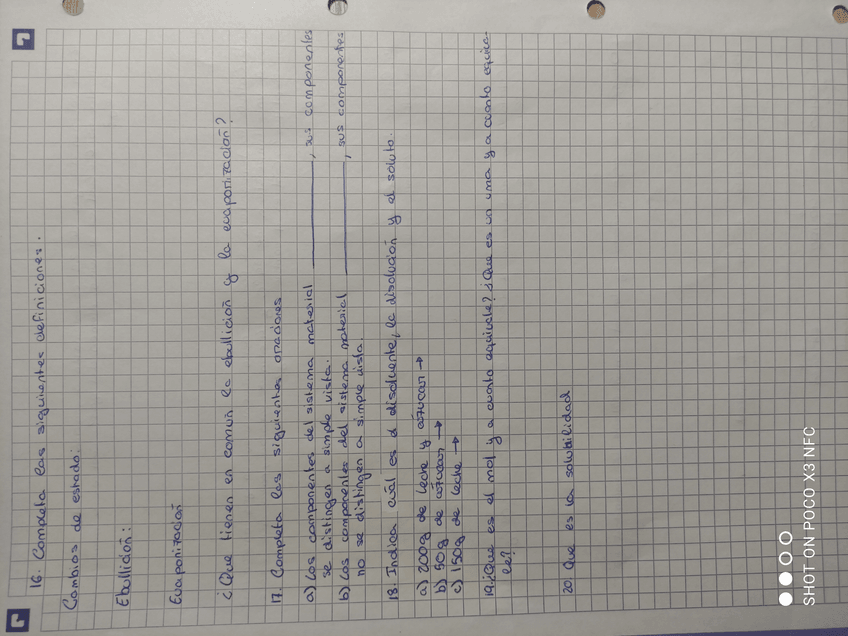 16. Completa las siguientes definiciones:
Cambios de estado:
Ebullición:
Evaporización
¿Que tienen en común la ebullición y la evaporización?
17. Completa las siguientes oraciones
a) Los componentes del sistema material ________, sus componentes
se distingen a simple vista.
b) Los componentes del sistema material ________, sus componentes
no se distingen a simple vista.
18. Indica cuál es el disolvente, la disolución y el soluto.
a) 200g de leche y azucar →
b) 50g de azucar →
c) 150g de leche →
19. ¿Que es el mol y a cuanto equivale? ¿Que es un uma y a cuanto equiva-
le?
20. Que es la solubilidad
SHOT ON POCO X3 NFC